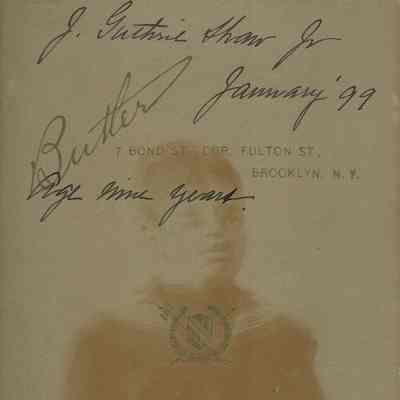 J. Guthrie Shaw Jr
January '99
Butler
7 BOND ST. COR. FULTON ST.,
BROOKLYN, N. Y.
Age nine years.